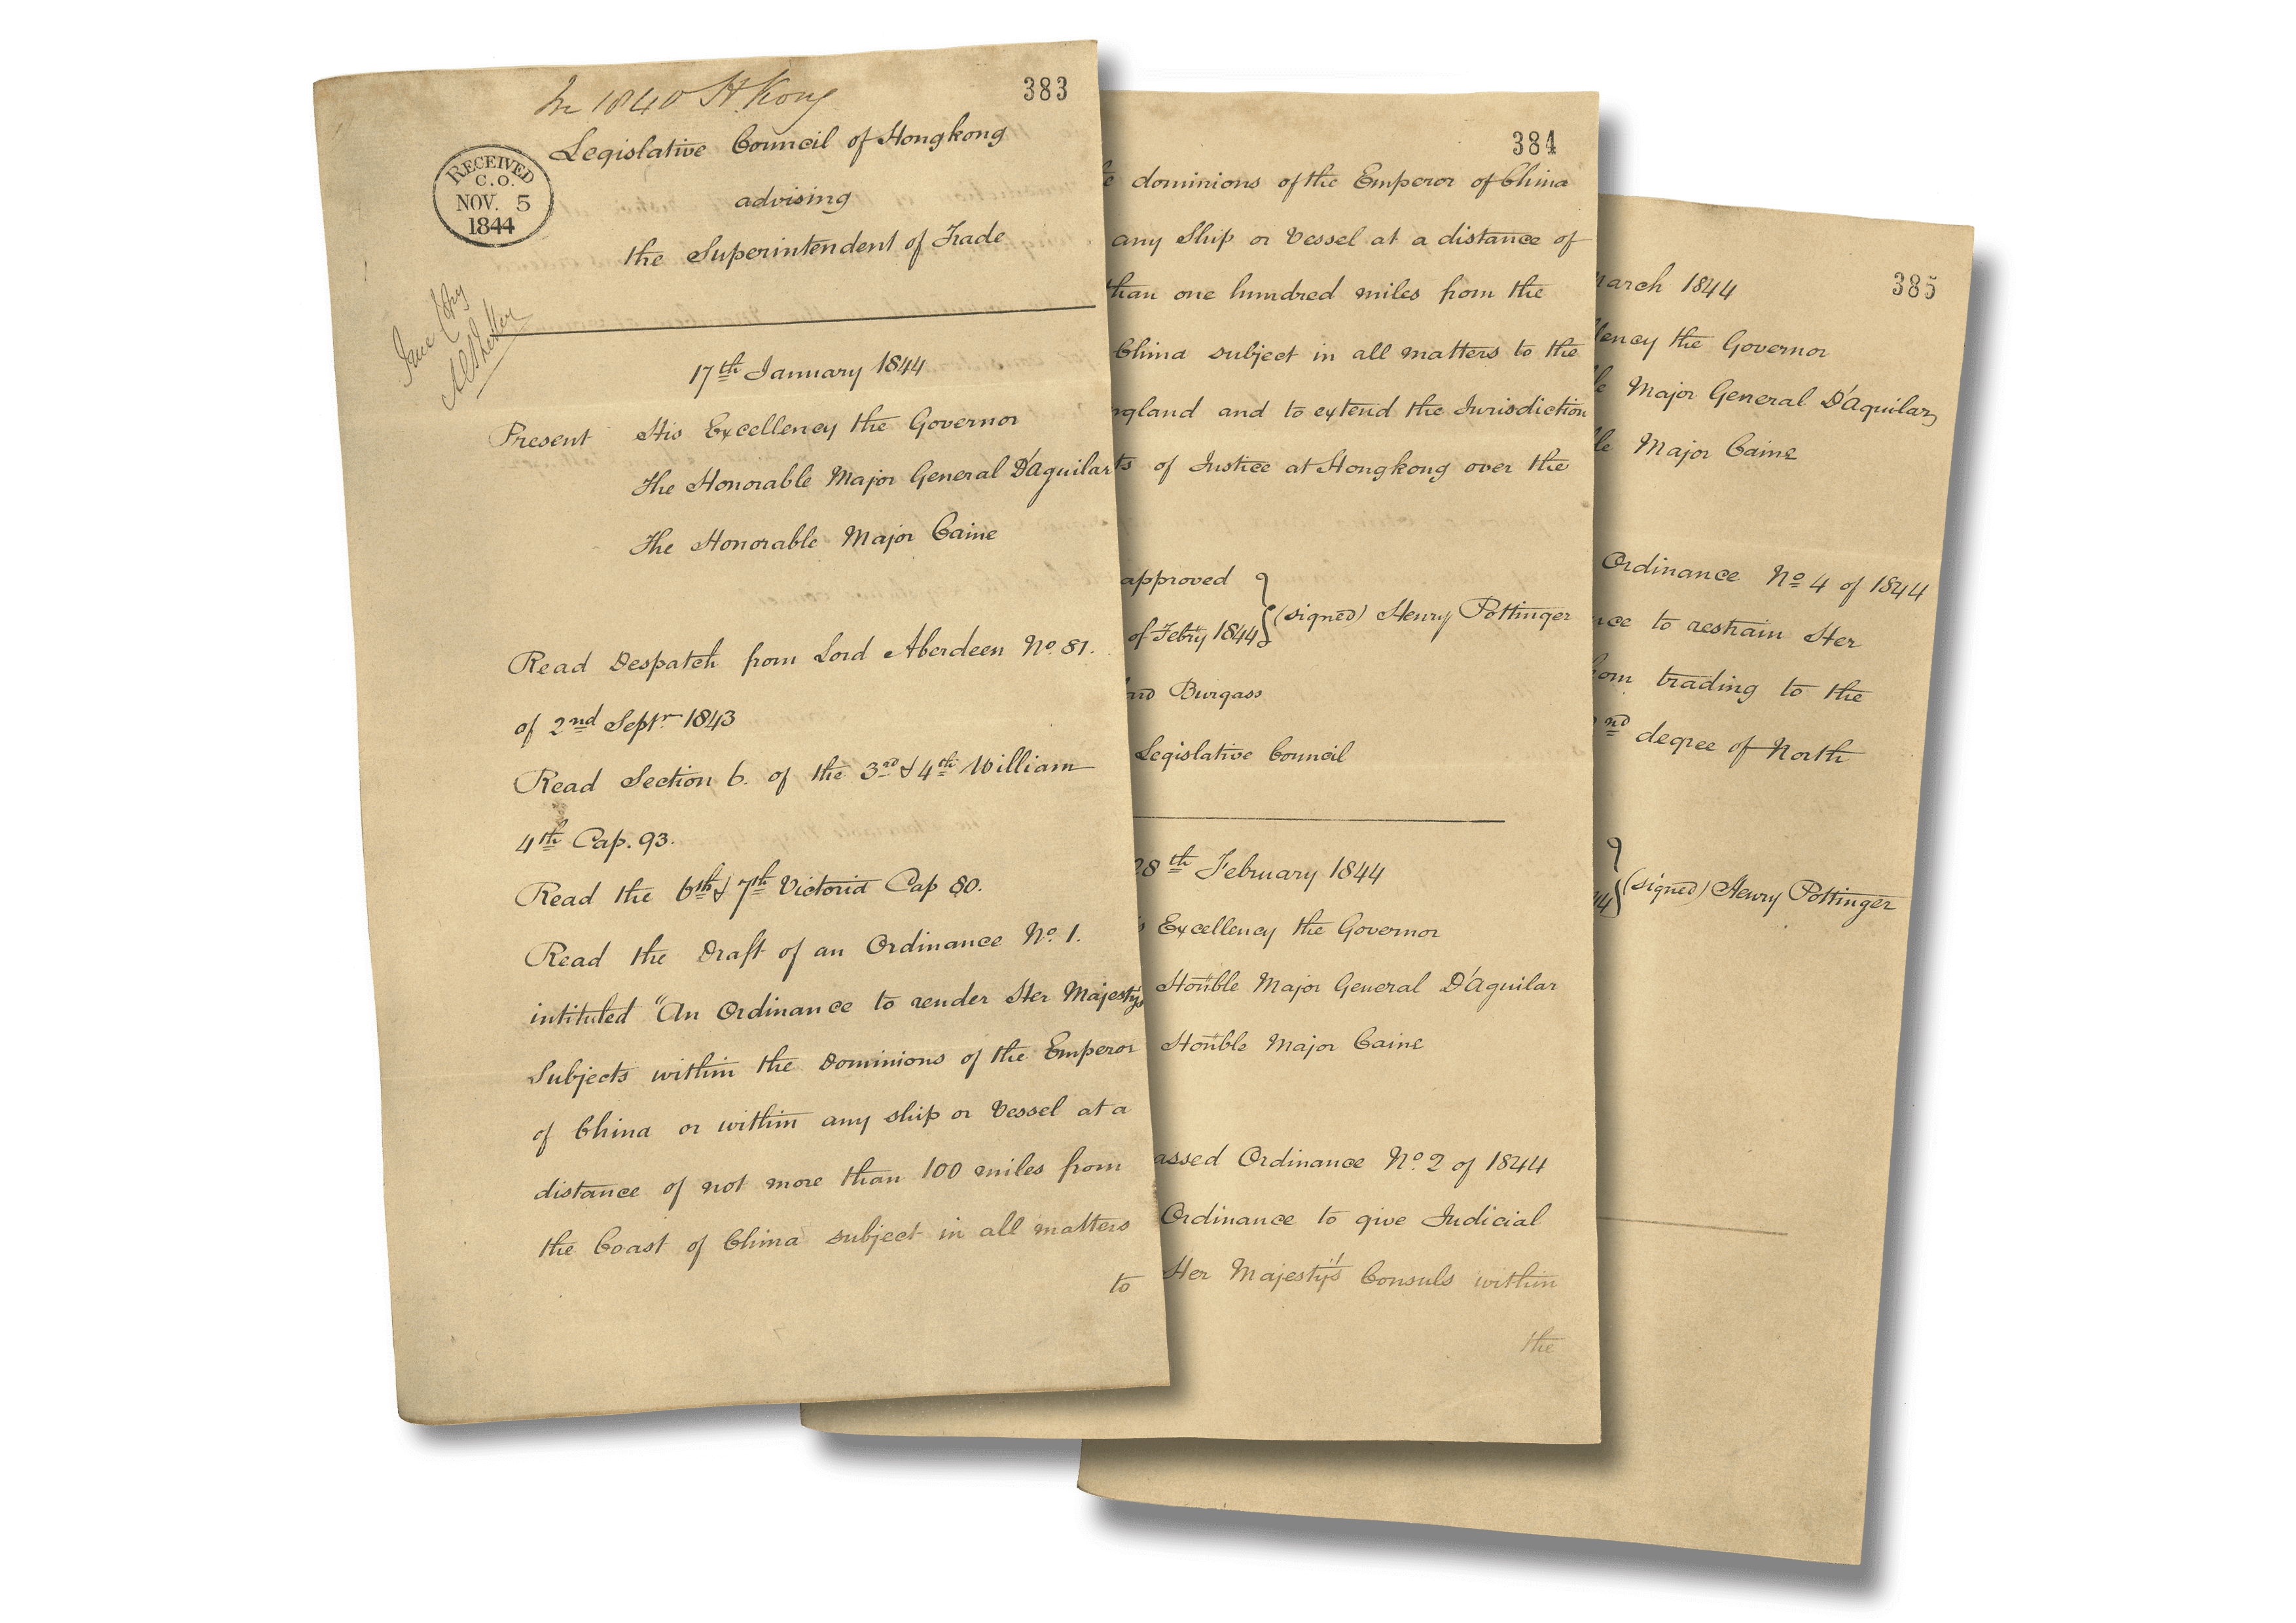 In 1840 H. Kong
383
Legislative Council of Hongkong
advising
the Superintendent of Trade
RECEIVED
C.O.
NOV. 5
1844
17th January 1844
Present His Excellency the Governor
The Honorable Major General D'Aguilar
The Honorable Major Caine
Read Despatch from Lord Aberdeen No. 81.
of 2nd Septr 1843
Read Section 6. of the 3rd & 4th William
4th Cap. 93.
Read the 6th & 7th Victoria Cap 80.
Read the Draft of an Ordinance No. 1.
intituled "An Ordinance to render Her Majesty's
Subjects within the Dominions of the Emperor
of China or within any ship or Vessel at a
distance of not more than 100 miles from
the Coast of China subject in all matters
to
384
dominions of the Emperor of China
any Ship or Vessel at a distance of
than one hundred miles from the
China subject in all matters to the
ngland and to extend the Jurisdiction
ts of Justice at Hongkong over the
approved
of Febry 1844 } (signed) Henry Pottinger
Burgass
Legislative Council
28th February 1844
Excellency the Governor
Honble Major General D'Aguilar
Honble Major Caine
assed Ordinance No. 2 of 1844
Ordinance to give Judicial
Her Majesty's Consuls within
the
385
arch 1844
lency the Governor
le Major General D'Aguilar,
le Major Caine
Ordinance No. 4 of 1844
nce to restrain Her
om trading to the
nd degree of North
44 } (signed) Henry Pottinger